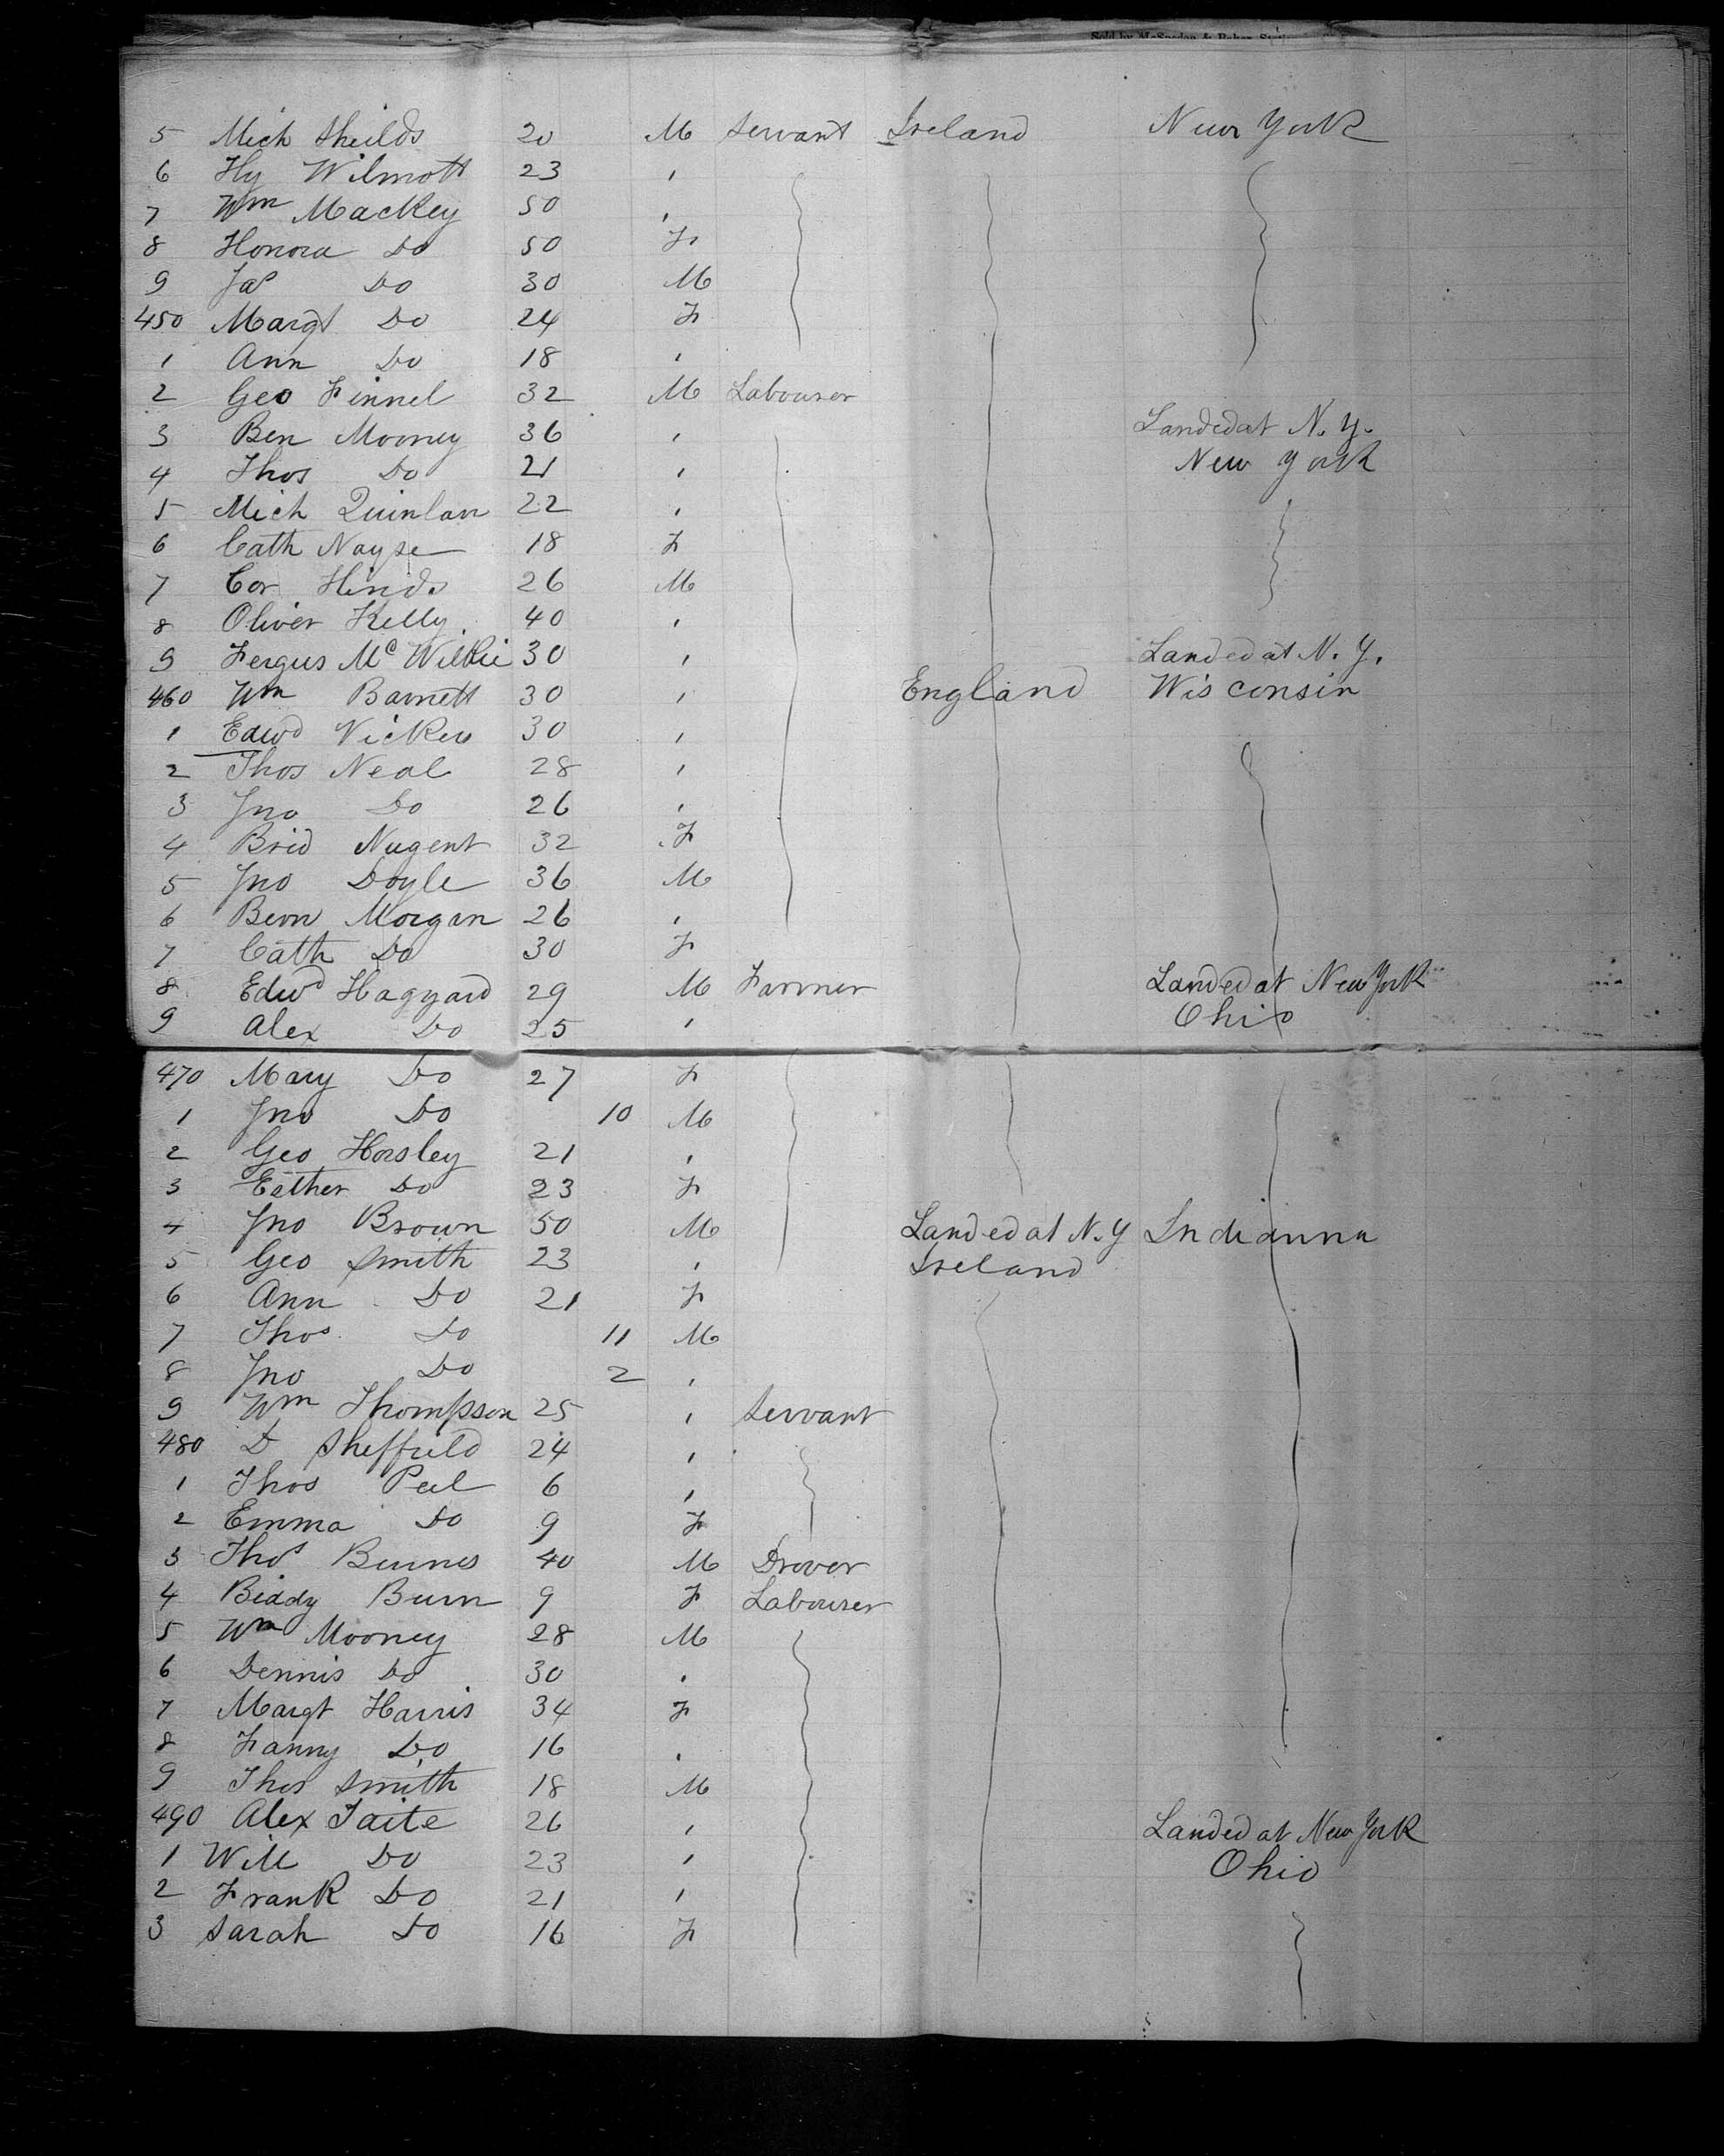 5 Mich Sheilds 20 M Servant Ireland New York
6 Hy Wilmott 23 '
7 Wm Mackey 50 '
8 Honora Do 50 F
9 Jas Do 30 M
450 Margt Do 24 F
1 Ann Do 18 '
2 Geo Finnel 32 M Labourer
3 Ben Mooney 36 ' Landed at N. Y.
4 Thos Do 21 ' New York
5 Mich Quinlan 22 '
6 Cath 18 F
7 Cor Hinds 26 M
8 Oliver Kelly 40 '
9 Fergus Mc Wilkie 30 ' Landed at N. Y.
460 Wm Barnett 30 ' England Wisconsin
1 Edwd Vickers 30 '
2 Thos Neal 28 '
3 Jno Do 26 '
4 Brid Nugent 32 F
5 Jno Doyle 36 M
6 Morgan 26 '
7 Cath Do 30 F
8 Edwd Hagyard 29 M Farmer Landed at New York
9 Alex Do 25 ' Ohio
470 Mary Do 27 F
1 Jno Do 10 M
2 Geo Horsley 21 '
3 Esther Do 23 F
4 Jno Brown 50 M Landed at N. Y Indianna
5 Geo Smith 23 ' Ireland
6 Ann Do 21 F
7 Thos Do 11 M
8 Jno Do 2 '
9 Wm Thompson 25 ' Servant
480 D Sheffield 24 '
1 Thos Peel 6 '
2 Emma Do 9 F
3 Thos 40 M Drover
4 Biddy Burn 9 F Labourer
5 Wm Mooney 28 M
6 Dennis Do 30 '
7 Margt Harris 34 F
8 Fanny Do 16 '
9 Thos Smith 18 M
490 Alex Taite 26 ' Landed at New York
1 Will Do 23 ' Ohio
2 Frank Do 21 '
3 Sarah Do 16 F